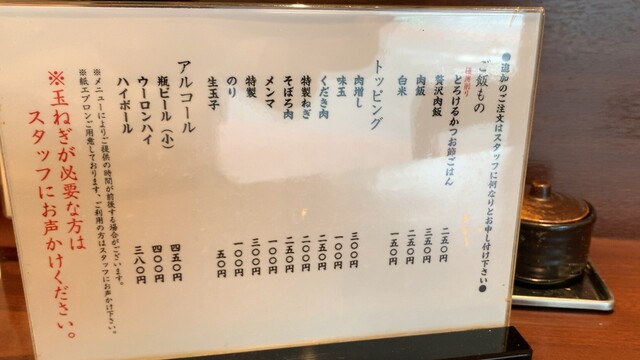 ●追加のご注文はスタッフに何なりとお申し付け下さい●
ご飯もの
とろけるかつお節ごはん 二五〇円
贅沢肉飯 三五〇円
肉飯 二五〇円
白米 一五〇円
トッピング
肉増し 三〇〇円
味玉 一〇〇円
くだき肉 二五〇円
特製ねぎ 二〇〇円
そぼろ肉 二五〇円
メンマ 一〇〇円
特製 三〇〇円
のり 一〇〇円
生玉子 五〇円
アルコール
瓶ビール（小） 四五〇円
ウーロンハイ 四〇〇円
ハイボール 三八〇円
※メニューによりご提供の時間が前後する場合がございます。
※紙エプロンご用意しております。ご利用の方はスタッフにお声がけ下さい。
※玉ねぎが必要な方は
スタッフにお声かけください。